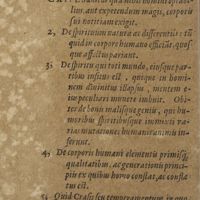 lius, aut expetendum magis, corporis
sui notitiam exigit.
2, De spirituum natura ac differentiis: tũ
quid in corpore humano efficiãt, quos
que affectus pariant.
3, De spiritu qui toti mundo, eiusque par
tibus insitus est, quique in homi
nem divinitus illapso, mentem e
ius peculiari munere imbuit. Ob
iter de bonis malisque geniis, qui hu
moribus spiritibusque immixti va
rias mutationes humanis animis in
ferunt.
4, De corporis humani elementis primisq;
qualitatibus, ac generationi princi
piis ex quibus homo constat, ac confla
tus est.
5, Quid Crasis seu temperamentum, in quo